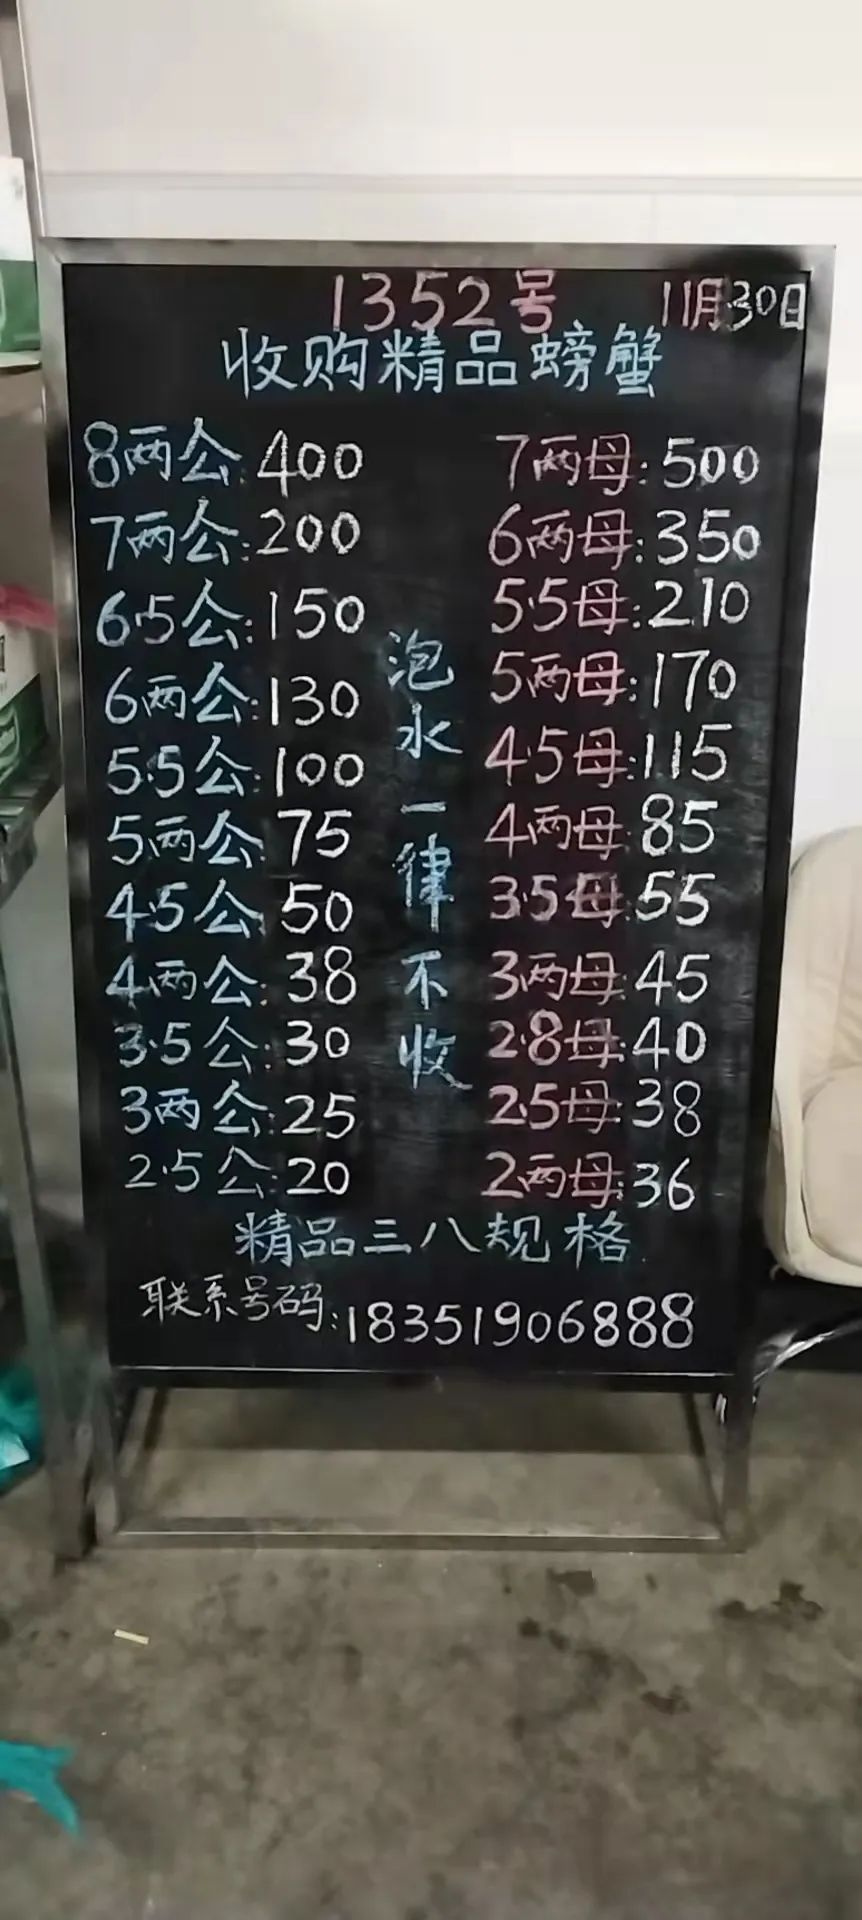 1352号 11月30日
收购精品螃蟹
8两公:400 7两母:500
7两公:200 6两母:350
6.5公:150 5.5母:210
6两公:130 5两母:170
5.5公:100 4.5母:115
5两公:75 4两母:85
4.5公:50 3.5母:55
4两公:38 3两母:45
3.5公:30 2.8母:40
3两公:25 2.5母:38
2.5公:20 2两母:36
泡水一律不收
精品三八规格
联系号码:18351906888